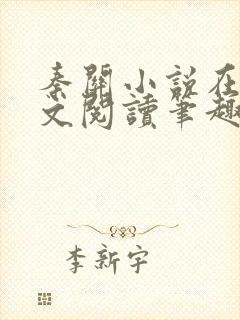 秦關小說在
文閱讀筆趣
李新宇